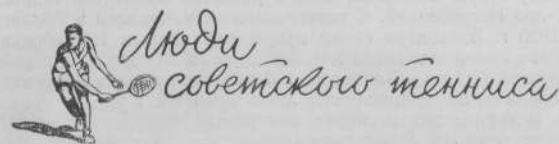 Люди
советского тенниса